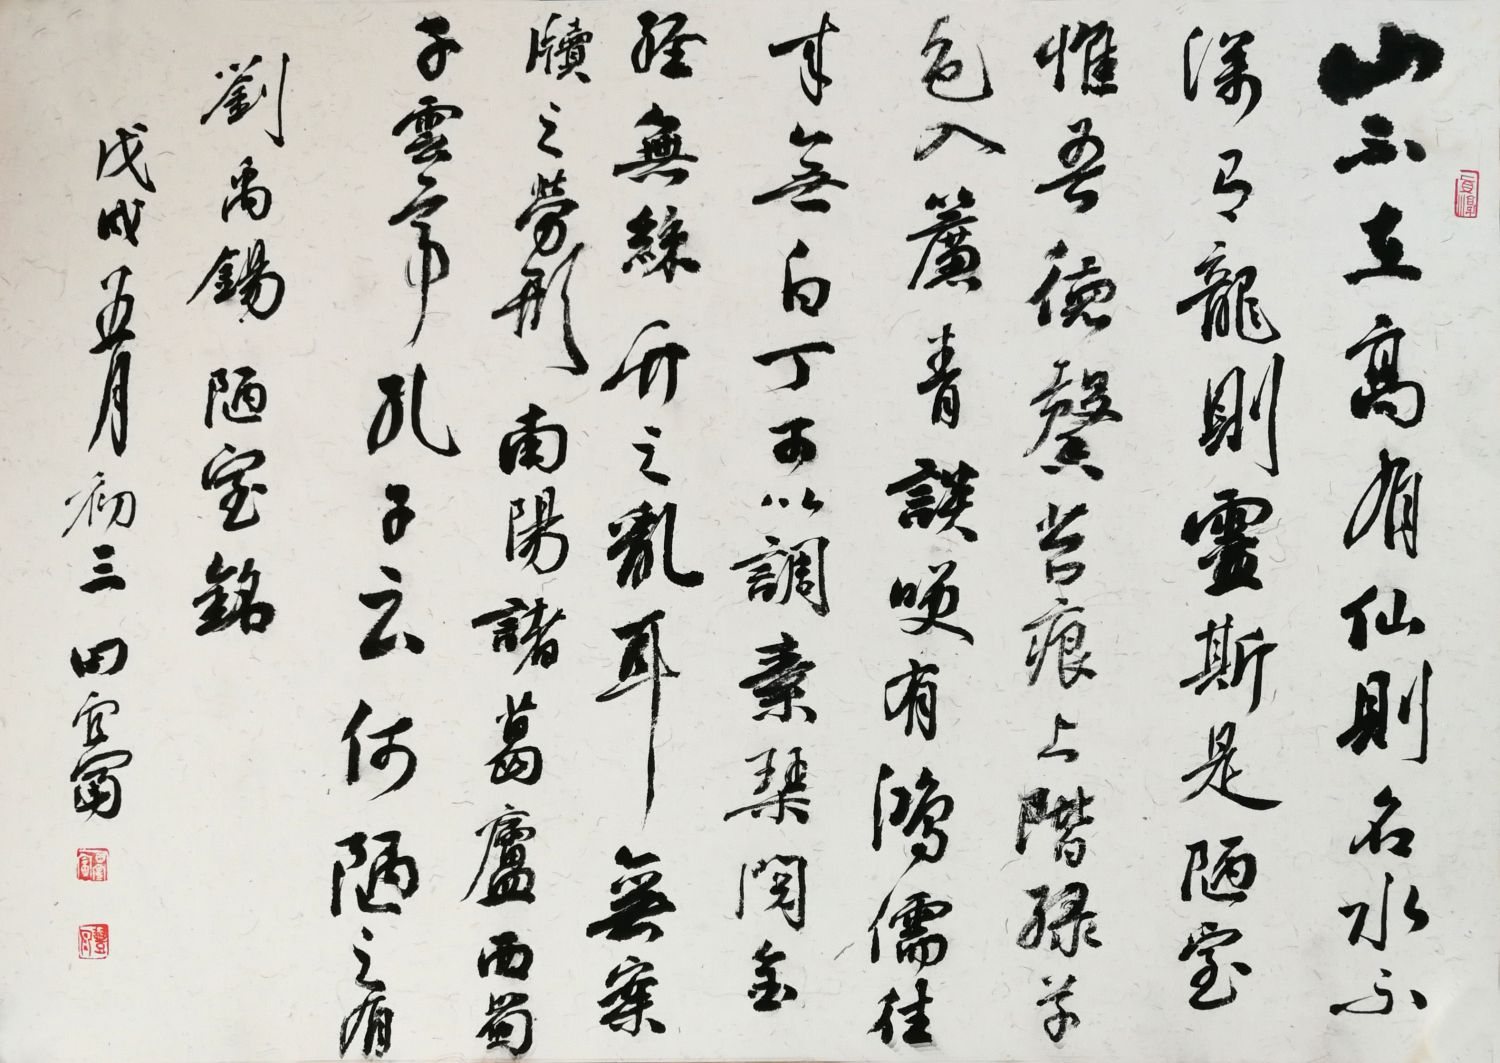 山不在高有仙則名水不
深有龍則靈斯是陋室
惟吾德馨苔痕上階綠草
色入簾青談笑有鴻儒往
來無白丁可以調素琴閱金
經無絲竹之亂耳無案
牘之勞形南陽諸葛廬西蜀
子雲亭孔子云何陋之有
劉禹錫陋室銘
戊戌五月初三田宜富